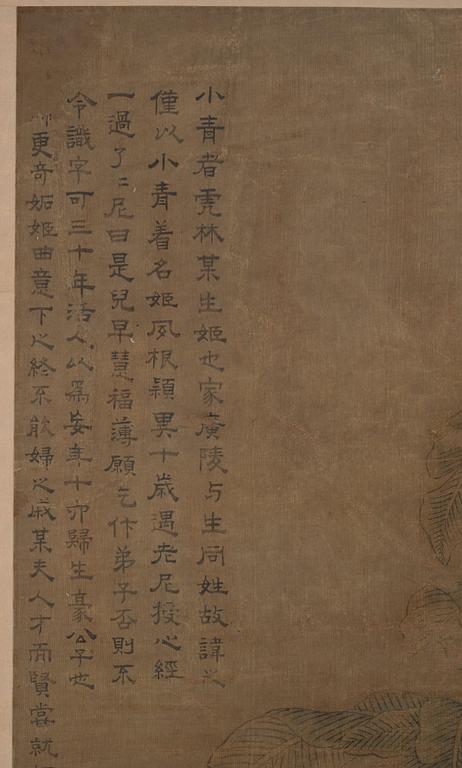 小青者虎林某生姬也家廣陵与生同姓故諱之
僅以小青着名姬夙根穎異十歲遇老尼授心經
一過了二尼曰是兒早慧福薄願乞作弟子否則不
令識字可三十年活人以為妄年十六歸生豪公子也
更奇妬姬曲意下之終不能婦之戚某夫人才而賢嘗就